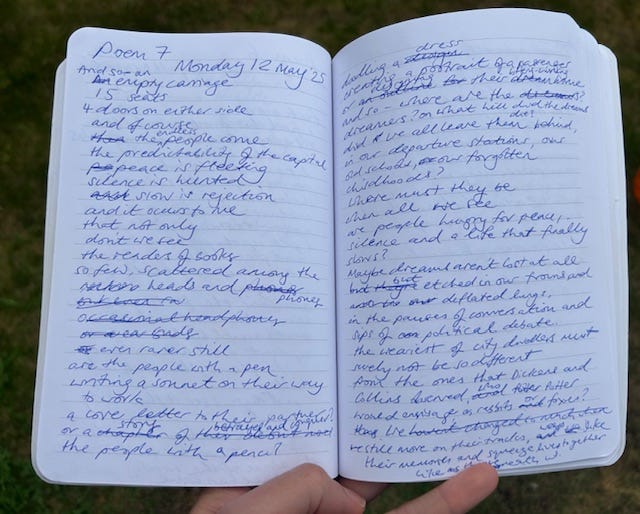 Poem 7
Monday 12 May '25
And so an
An empty carriage
15 seats
4 doors on either side
and of course
then the endless people come
the predictability of the capital
peace is fleeting
silence is hunted
and slow is rejection
and it occurs to me
that not only
don't we see
the readers of books
so few, scattered among the
heads and phones
phones
but even in
occasional headphones
or ear buds
or even rarer still
are the people with a pen
writing a sonnet on their way
to work
a love letter to their partner?
or a chapter story of their debut novel betrayal and conquer?
the people with a pencil?
dress
doodling a designer
creating a portrait of a passenger
or an for their
And so – where are the dreams?
dreamers? On what hill did the dreams die?
did we all leave them behind,
in our departure stations, our
old schools, or our forgotten
childhoods?
Where must they be
when all we see
are people hungry for peace,
silence and a life that finally
slows?
Maybe dreams aren't lost at all
but they're but etched in our frowns and
our deflated lungs,
in the pauses of conversation and
sips of political debate.
the weariest of city dwellers must
surely not be so different
from the ones that Dickens and
Collins observed, and who Potter
would envisage as rabbits and foxes?
We haven't changed in
like
their memories and squeeze together
like